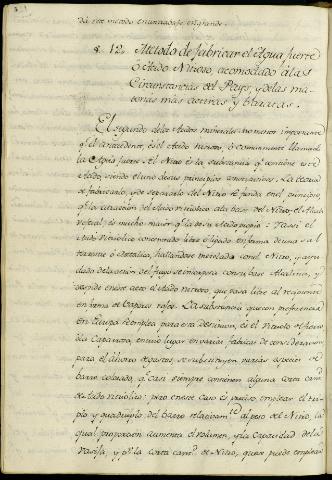 da este metodo en
§ 12. Metodo de fabricar el Agua fuerte
ó Acido Nitroso, acomodado á las
Circunstancias del Pays, y de las ma-
terias mas activas y baratas.
El segundo de los Acidos minerales no menos importante
q.e el antecedente, es el Acido Nitroso, ó comunmente llamado
la Agua fuerte. El Nitro es la substancia q.e contiene este
Acido, siendo el uno de sus principios
de fabricarlo, y de separarlo del Nitro se funda en el principio,
q.e la atraccion del Acido vitriolico á la base del Nitro, el Alkali
vejetal, es mucho maior q.e la de su Acido propio: Y assi el
Acido Vitriolico concentrado libre ó ligado en forma de una sal
terrestre ó Metalica, hallandose mezclado con el Nitro, y ayu-
dado de la accion del fuego se incorpora con su base Alcalina, y
despide en este acto el Acido nitroso, que pasa libre al recipiente
en forma de Vapores rojos. La substancia que con preferencia
en Europa se emplea para esta destilacion, es el Vitriolo de hierro
dia Caparrosa, en cuio lugar en varias fabricas de consideracion
para el ahorro de gastos, se substituyen varias especies de
barro colorado, q.e casi siempre contienen alguna corta cant.d
de Acido vitriolico: pero en este caso es preciso emplear el tri-
plo y quadruplo del barro relativam.te al peso del Nitro, la
qual proporcion aumenta el volumen, y la capacidad de la
vasija, y p.r la corta cant.d de Nitro, que se puede emplear